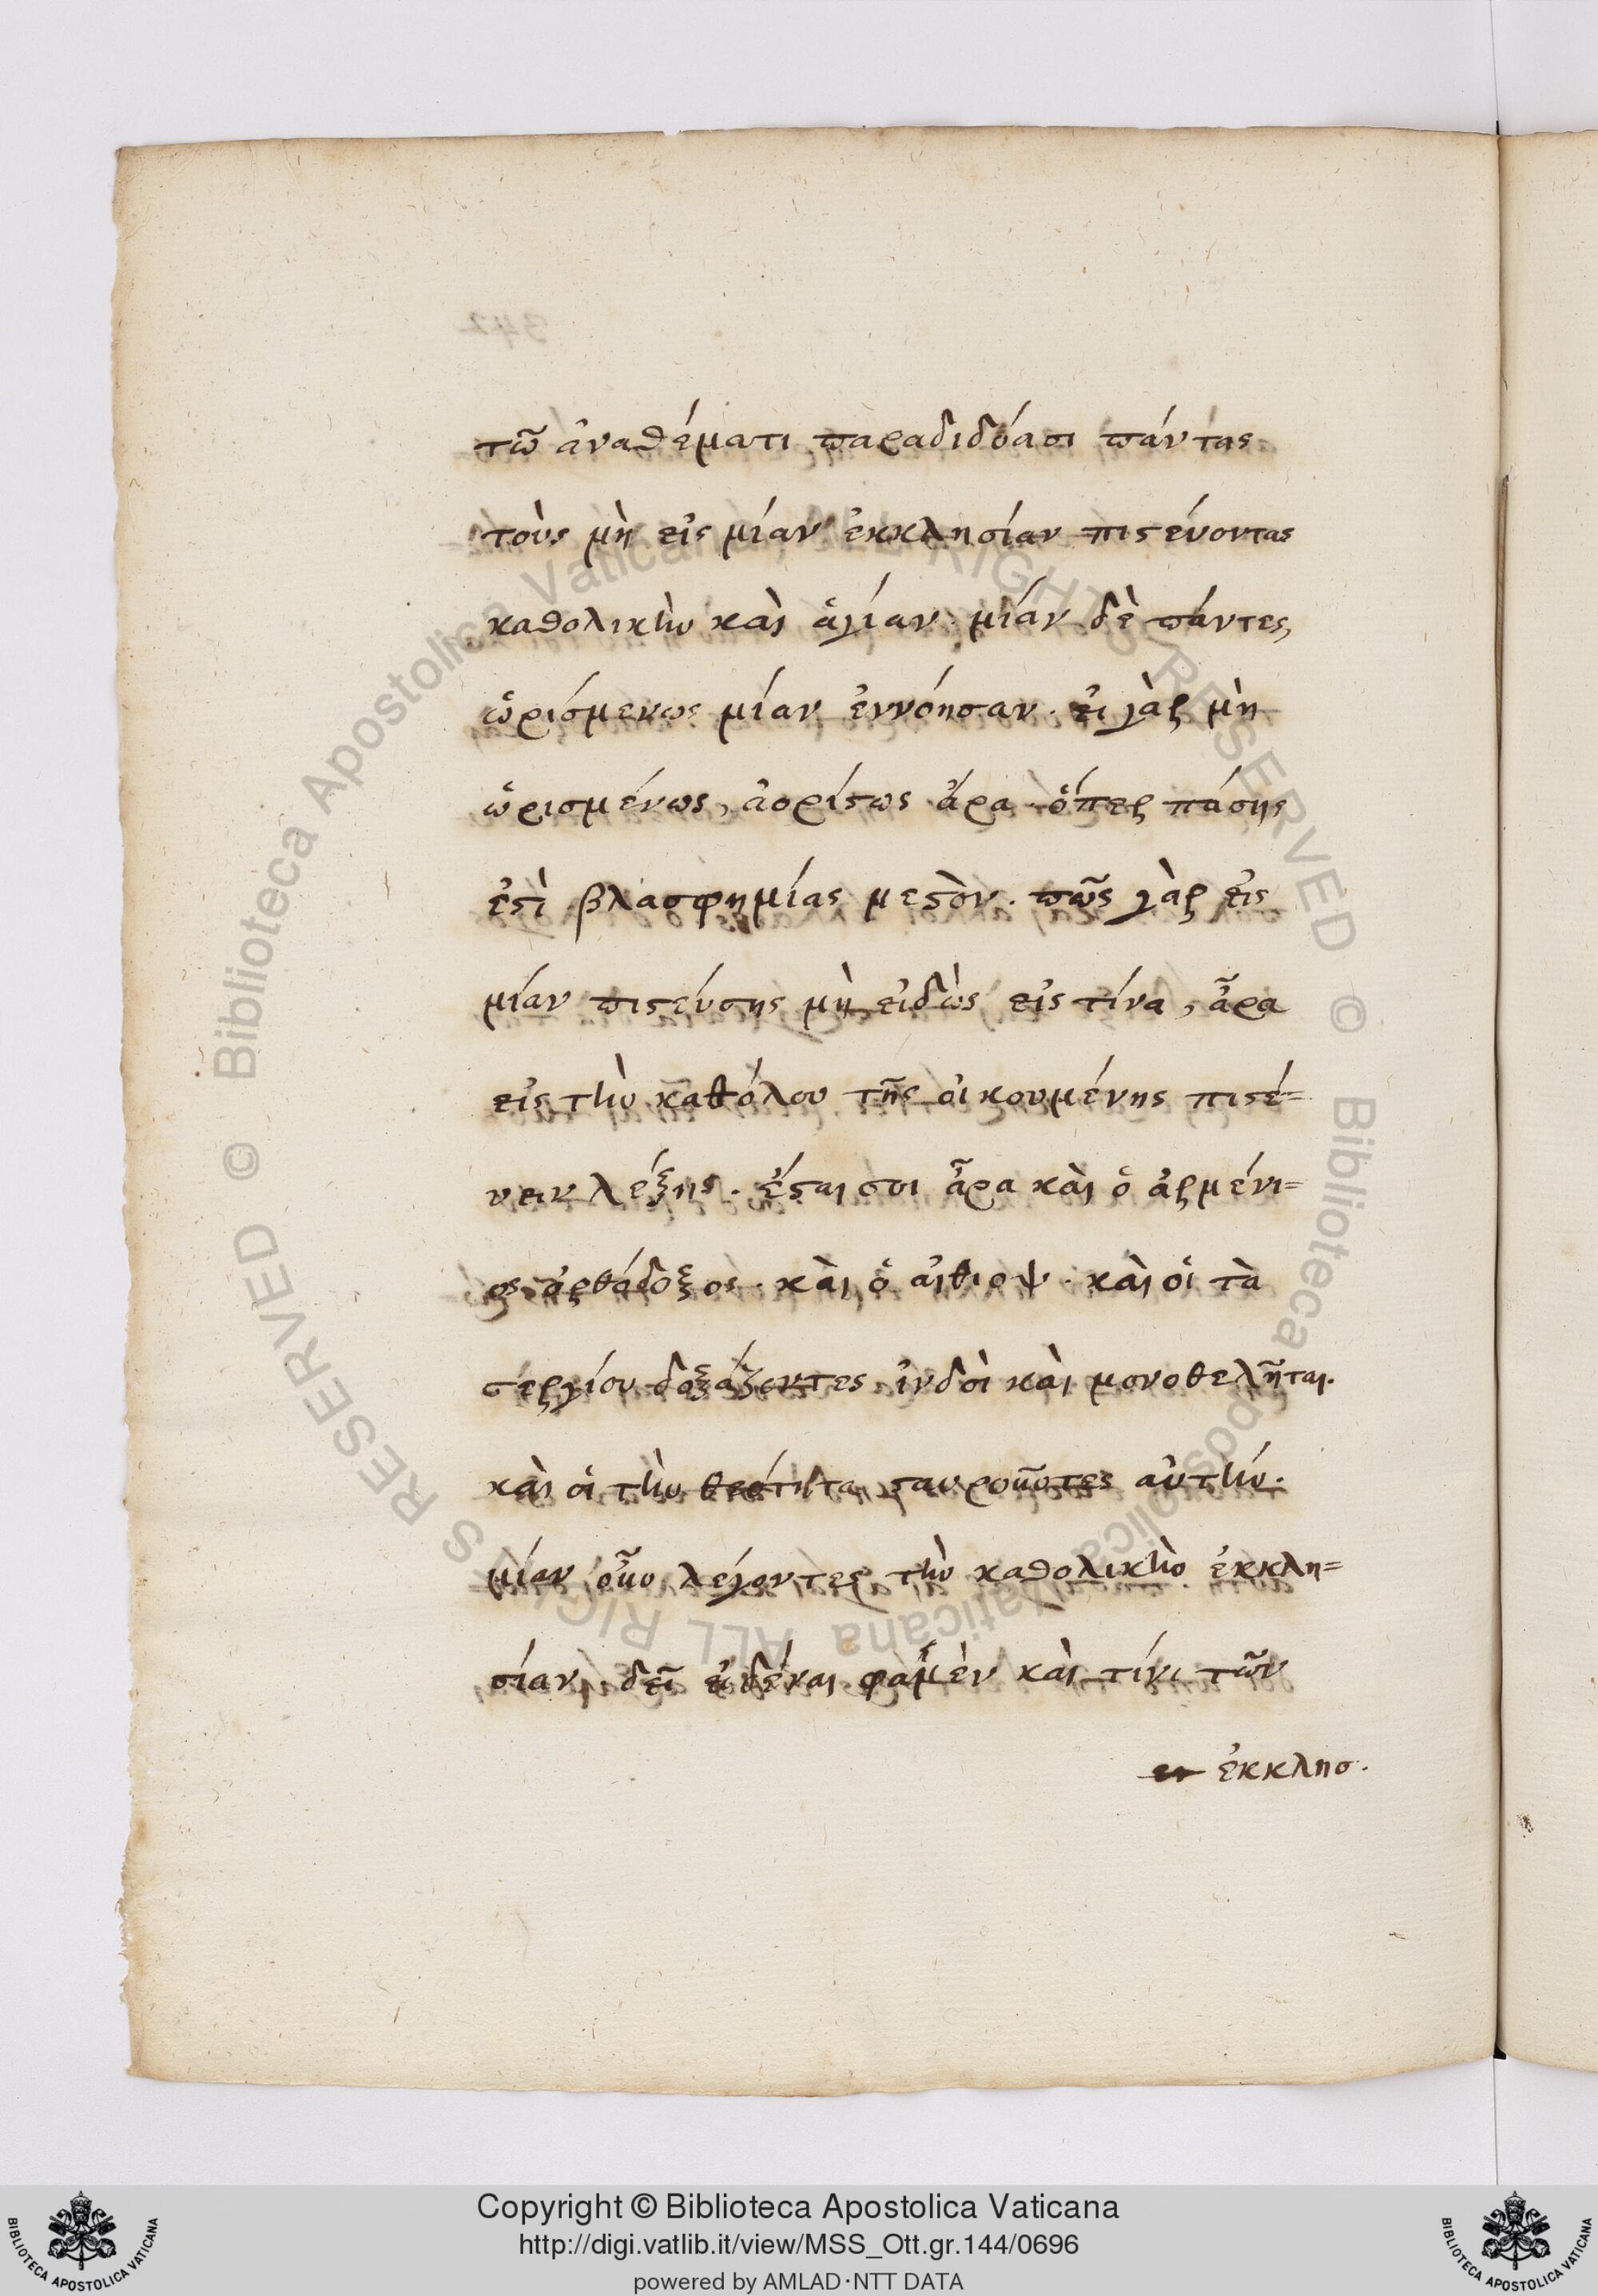 τῶ ἀναθέματι παραδιδόασι πάντας
τοὺς μὴ εἰς μίαν ἐκκλησίαν πιϛεύοντας
καθολικὴν καὶ ἁγίαν· μίαν δὲ πάντες,
ὡρίσμενως μίαν ἐννόησαν. εἰ γὰρ μὴ
ὡρισμένως, ἀορίϛως ἄρα· ὅπερ πάσης
ἐϛὶ βλασφημίας μεϛὸν. πῶς γὰρ εἰς
μίαν πιϛεύσης μὴ εἰδὼς εἰς τίνα, ἆρα
εἰς τὴν καθόλου τῆς οἰκουμένης πιϛέ=
υειν λέξης. ἔϛαι σοι ἆρα καὶ ὁ ἀρμένι=
ος ὀρθόδοξος· καὶ ὁ αἰθιοψ· καὶ οἱ τὰ
σεργίου δοξάζοντες ἰνδοὶ καὶ μονοθελῆται.
καὶ οἱ τὴν θεότητα ϛαυροῦντες αὐτήν.
μίαν οὖν λέγοντες τὴν καθολικὴν ἐκκλη=
σίαν, δεῖ εἰδέναι φαμὲν καὶ τίνι τῶν
ἐκκλησ.
342
© Biblioteca Apostolica Vaticana ALL RIGHTS RESERVED © Biblioteca Apostolica Vaticana ALL RIGHTS RESERVED
Copyright © Biblioteca Apostolica Vaticana
http://digi.vatlib.it/view/MSS_Ott.gr.144/0696
powered by AMLAD·NTT DATA
BIBLIOTECA APOSTOLICA VATICANA
BIBLIOTECA APOSTOLICA VATICANA